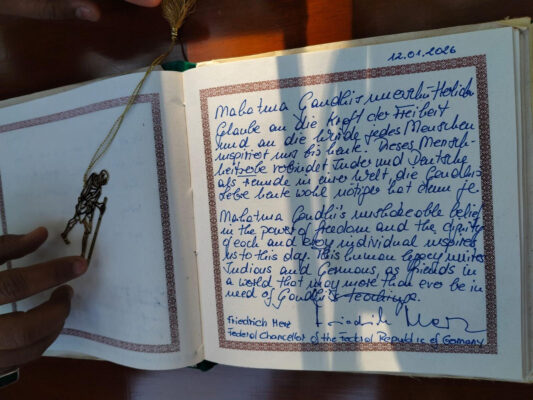 12.01.2026
Mahatma Gandhis unerschütterlicher
Glaube an die Kraft der Freiheit
und an die Würde jedes Menschen
inspiriert uns bis heute. Dieses Mensch-
heitserbe verbindet Inder und Deutsche
als Freunde in einer Welt, die Gandhis
Lehre heute wohl nötiger hat denn je.
Mahatma Gandhi's unshakeable belief
in the power of freedom and the dignity
of each and every individual inspires
us to this day. This human legacy unites
Indians and Germans, as friends in
a world that may more than ever be in
need of Gandhi's teachings.
Friedrich Merz
Friedrich Merz
Federal Chancellor of the Federal Republic of Germany